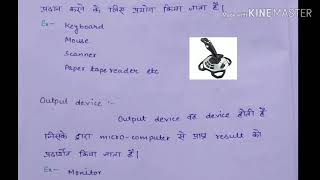 Made with KINEMASTER
प्रदान करने के लिए प्रयोग किया जाता है।
Ex:- Keyboard
Mouse
Scanner
Paper tape reader etc
Output device :-
Output device वह device होती है
जिसके द्वारा micro-computer से प्राप्त result को
प्रदर्शित किया जाता है।
Ex:- Monitor